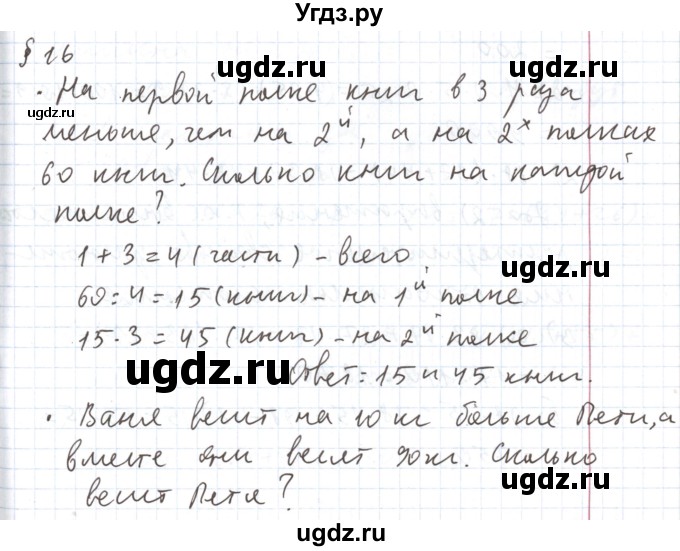 Угдз.ру
§ 16
ugdz.ru ugdz.ru
· На первой полке книг в 3 раза
ugdz.ru
меньше, чем на 2й, а на 2х полках
60 книг. Сколько книг на каждой
полке?
ugdz.ru ugdz.ru
1 + 3 = 4 (части) – всего
60 : 4 = 15 (книг) – на 1й полке
15 · 3 = 45 (книг) – на 2й полке
ugdz.ru ugdz.ru
Ответ: 15 и 45 книг.
· Ваня весит на 10 кг больше Пети, а
вместе они весят 90 кг. Сколько
ugdz.ru ugdz.ru
весит Петя?
ugdz.ru